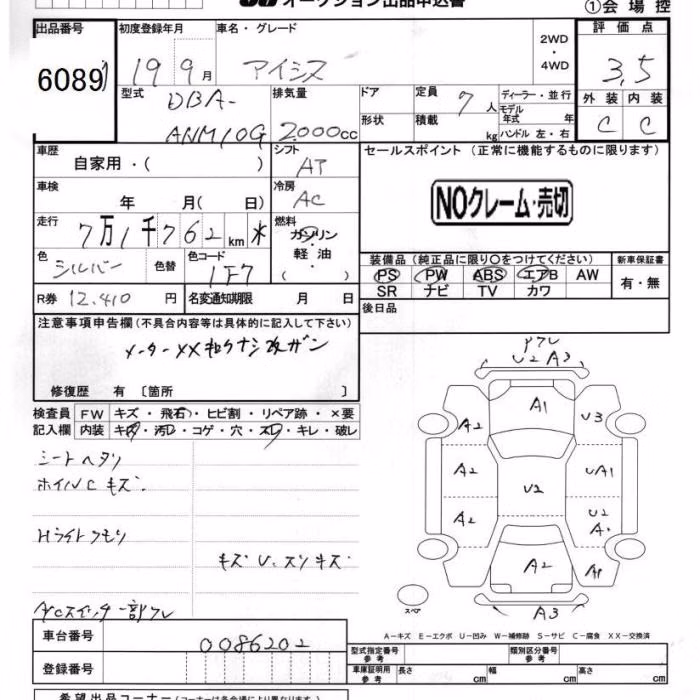 オークション出品申込書
①会場控
出品番号 初度登録年月 車名・グレード 2WD・4WD 評価点
6089 19 9月 アイシス 3.5
型式 DBA-ANM10G 排気量 2000cc ドア 形状 定員 7人 積載 kg ディーラー・並行 モデル年式 年 ハンドル 左・右 外装 内装
C C
車歴 自家用・( ) シフト AT セールスポイント (正常に機能するものに限ります)
車検 年 月( 日) 冷房 AC
NOクレーム・売切
走行 7万1千762km 燃料 ガソリン・軽油・( )
色 シルバー 色替 色コード 1F7
装備品 (純正品に限り○をつけてください) 新車保証書
PS PW ABS エアB AW 有・無
SR ナビ TV カワ
R券 12.410円 名変通知期限 月 日
後日品
注意事項申告欄 (不具合内容等は具体的に記入して下さい)
修復歴 有 〔箇所 〕
検査員記入欄 FW キズ・飛石・ヒビ割・リペア跡・×要
内装 キズ・汚レ・コゲ・穴・スレ・キレ・破レ
シートヘタリ
ホイルCキズ
Hライトクモリ
キズU.スリキズ
A/Cスイッチ一部ワレ
U2 A3
A1
A2 U3
A2 UA1
U2
A2 U2
A2 A1
A3
スペア
A−キズ E−エクボ U−凹み W−補修跡 S−サビ C−腐食 XX−交換済
車台番号 0086202
登録番号
型式指定番号 参考 類別区分番号 参考
車庫証明用 参考 長さ cm 幅 cm 高さ cm
希望出品コーナー